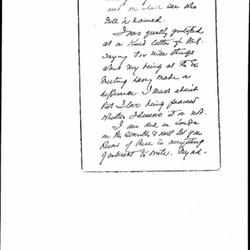 see who
will be named.
I was greatly gratified
at a kind letter of
saying few nice things
about my being at the
Meeting having made a
difference. I must admit
that I love being praised
whether I deserve it or not.
I am due in London
on the & will let you
know if there is anything
of interest to write.